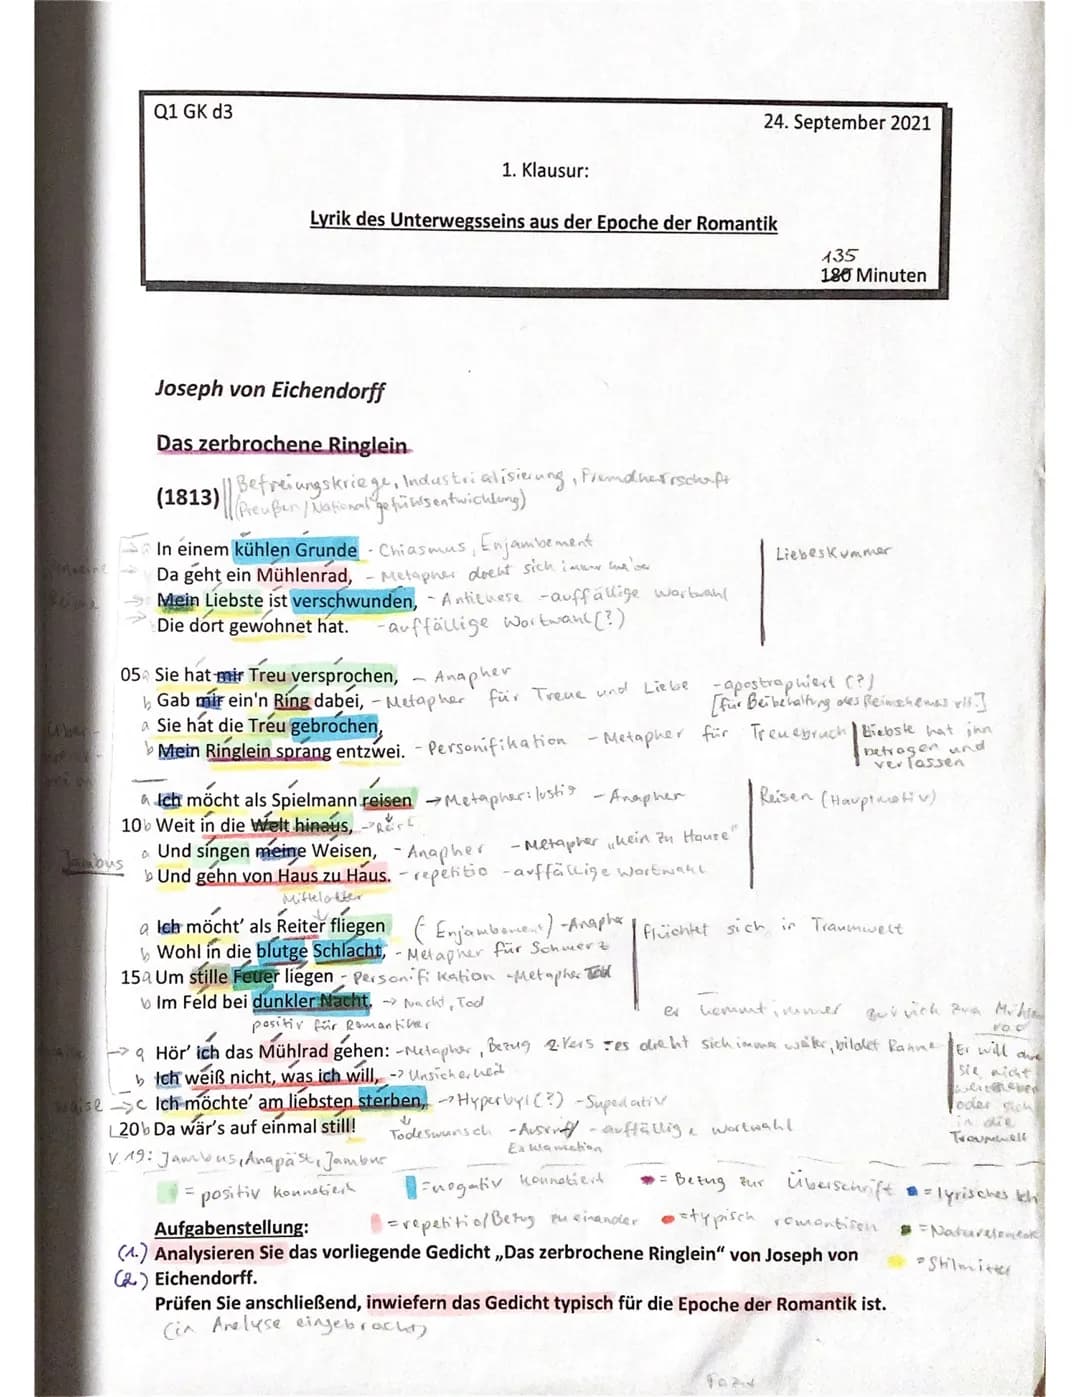 Q1 GK d3
24. September 2021
1. Klausur:
Lyrik des Unterwegsseins aus der Epoche der Romantik
135
180 Minuten
Joseph von Eichendorff
Das zerbrochene Ringlein
Befreiungskriege, Industrialisierung, Fremdherrschaft
(1813) (Preußen/Nationalgefühlsentwicklung)
In einem kühlen Grunde - Chiasmus, Enjambement
Liebeskummer
Da geht ein Mühlenrad, - Metapher dreht sich immer
Mein Liebste ist verschwunden, - Antithese - auffällige Wortwahl
Die dort gewohnet hat. - auffällige Wortwahl(?)
05 a Sie hat mir Treu versprochen, - Anapher
b Gab mir ein'n Ring dabei, - Metapher für Treue und Liebe - apostrophiert (?)
[für Beibehaltung des Reimschemas vll.]
a Sie hat die Treu gebrochen,
b Mein Ringlein sprang entzwei. - Personifikation - Metapher für Treuebruch
Liebste hat ihn
betrogen und
verlassen
a Ich möcht als Spielmann reisen → Metapher: lustig - Anapher
Reisen (Hauptmotiv)
10 b Weit in die Welt hinaus,
a Und singen meine Weisen, - Anapher - Metapher „kein zu Hause"
Jambus
b Und gehn von Haus zu Haus. - repetitio - auffällige Wortwahl
Mittelalter
a Ich möcht' als Reiter fliegen (- Enjambement) - Anapher
flüchtet sich in Traumwelt
b Wohl in die blutge Schlacht, - Metapher für Schmerz
15 a Um stille Feuer liegen - Personifikation - Metapher Tod
b Im Feld bei dunkler Nacht. → Nacht, Tod
positiv für Romantiker
er kommt immer zurück zum
a Hör' ich das Mühlrad gehen: - Metapher, Bezug 2. Vers = es dreht sich immer weiter, bildet Rahmen
b Ich weiß nicht, was ich will, -> Unsicherheit
Waise → c Ich möchte' am liebsten sterben, → Hyperbyl(?) - Superlativ
Er will
sie nicht
oder sich
in die
Traumwelt
20 b Da wär's auf einmal still!
Todeswunsch - Ausruf - auffällige Wortwahl
Exklamation
V. 19: Jambus, Anapäst, Jambus
= positiv konnotiert
= negativ konnotiert
= Bezug zur Überschrift
= lyrisches Ich
= repetitio/Bezug zu einander
= typisch romantisch
= Naturelement
= Stilmittel
Aufgabenstellung:
(1.) Analysieren Sie das vorliegende Gedicht „Das zerbrochene Ringlein“ von Joseph von
(2.) Eichendorff.
Prüfen Sie anschließend, inwiefern das Gedicht typisch für die Epoche der Romantik ist.
(in Analyse eingebracht)
Fazit